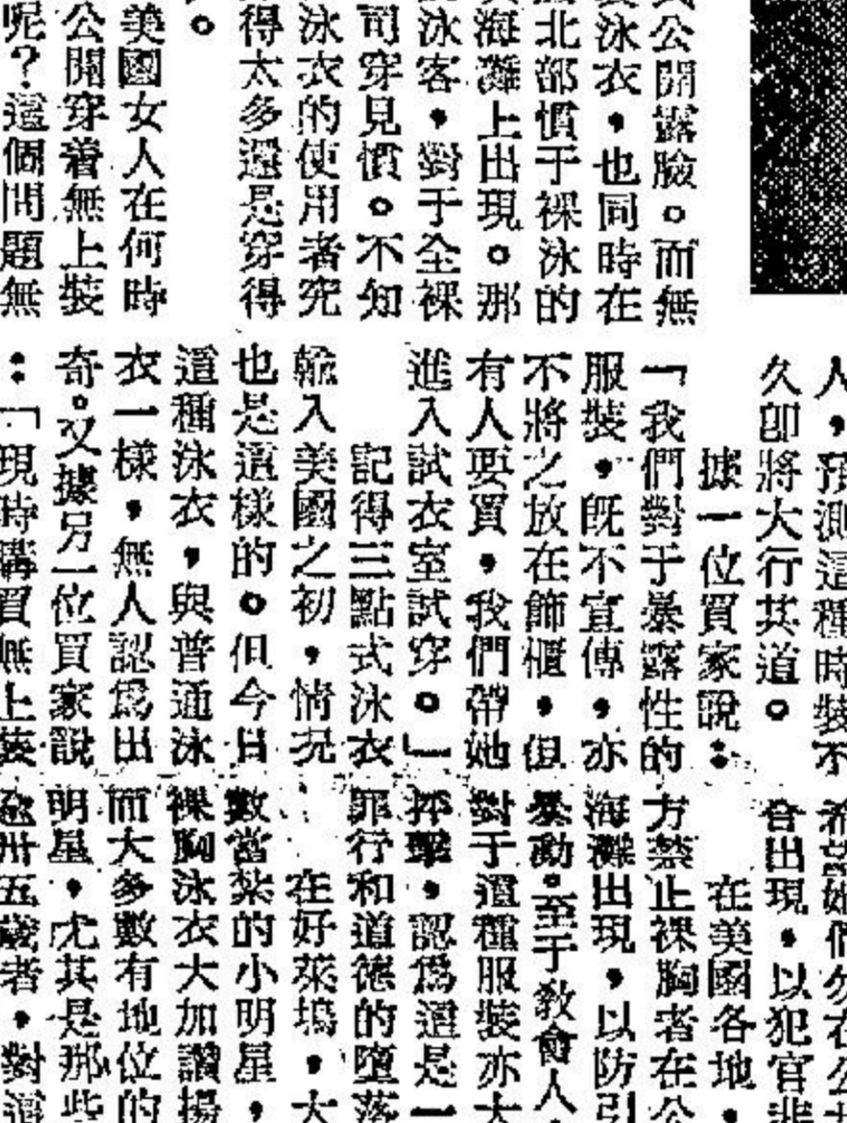 公開露臉。而無
泳衣，也同時在
北部慣于裸泳的
海灘上出現。那
泳客，對于全裸
司穿見慣。不知
泳衣的使用者究
得太多還是穿得
。
美國女人在何時
公開穿着無上裝
呢？這個問題無
人，預測這種時裝不
久卽將大行其道。
據一位買家說：
「我們對于暴露性的
服裝，既不宣傳，亦
不將之放在飾櫃，但
有人要買，我們帶她
進入試衣室試穿。」
記得三點式泳衣
輸入美國之初，情況
也是這樣的。但今日
這種泳衣，與普通泳
衣一樣，無人認爲出
奇。又據另一位買家說
：「現時購買無上裝
希望她們勿在公共
合出現，以犯官非
在美國各地，
方禁止裸胸者在公
海灘出現，以防引
暴動。至于教會人
對于這種服裝亦大
抨擊，認爲這是一
罪行和道德的墮落
在好萊塢，大
數當紮的小明星，
裸胸泳衣大加讚揚
而大多數有地位的
明星，尤其是那些
逾卅五歲者，對這